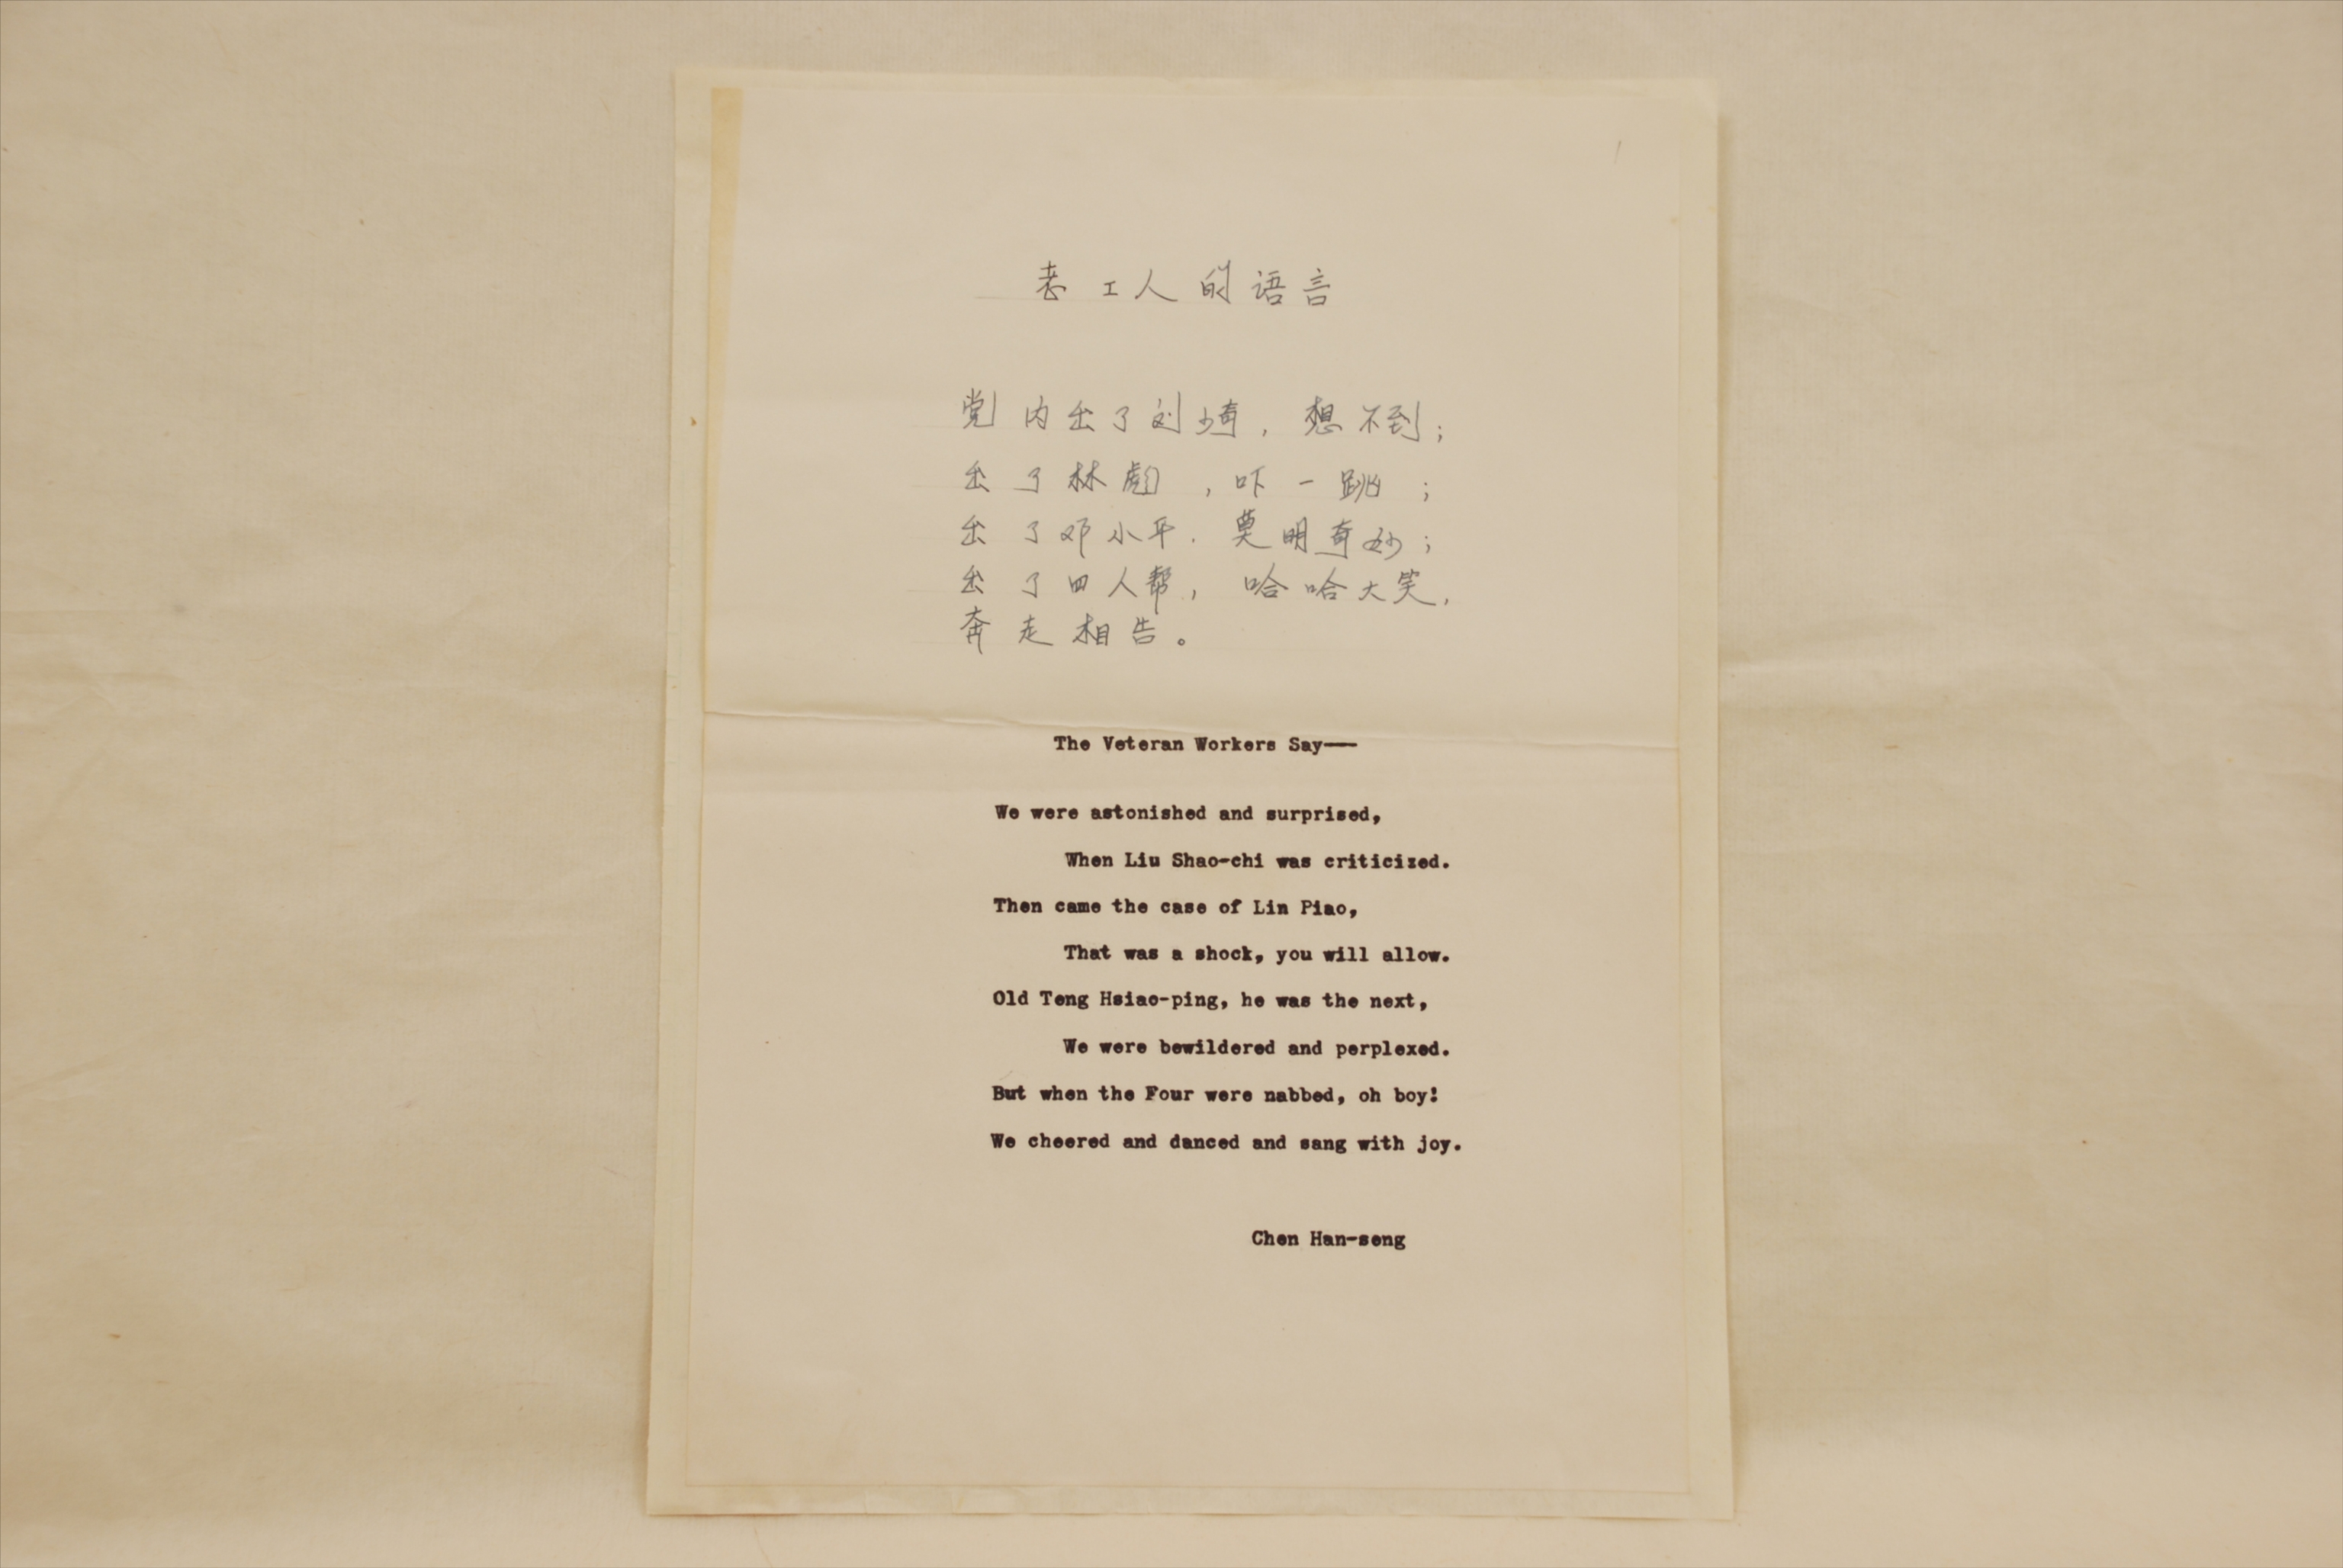 老工人的语言
党内出了刘少奇，想不到；
出了林彪，吓一跳；
出了邓小平，莫明奇妙；
出了四人帮，哈哈大笑，
奔走相告。
The Veteran Workers Say——
We were astonished and surprised,
When Liu Shao-chi was criticized.
Then came the case of Lin Piao,
That was a shock, you will allow.
Old Teng Hsiao-ping, he was the next,
We were bewildered and perplexed.
But when the Four were nabbed, oh boy!
We cheered and danced and sang with joy.
Chen Han-seng